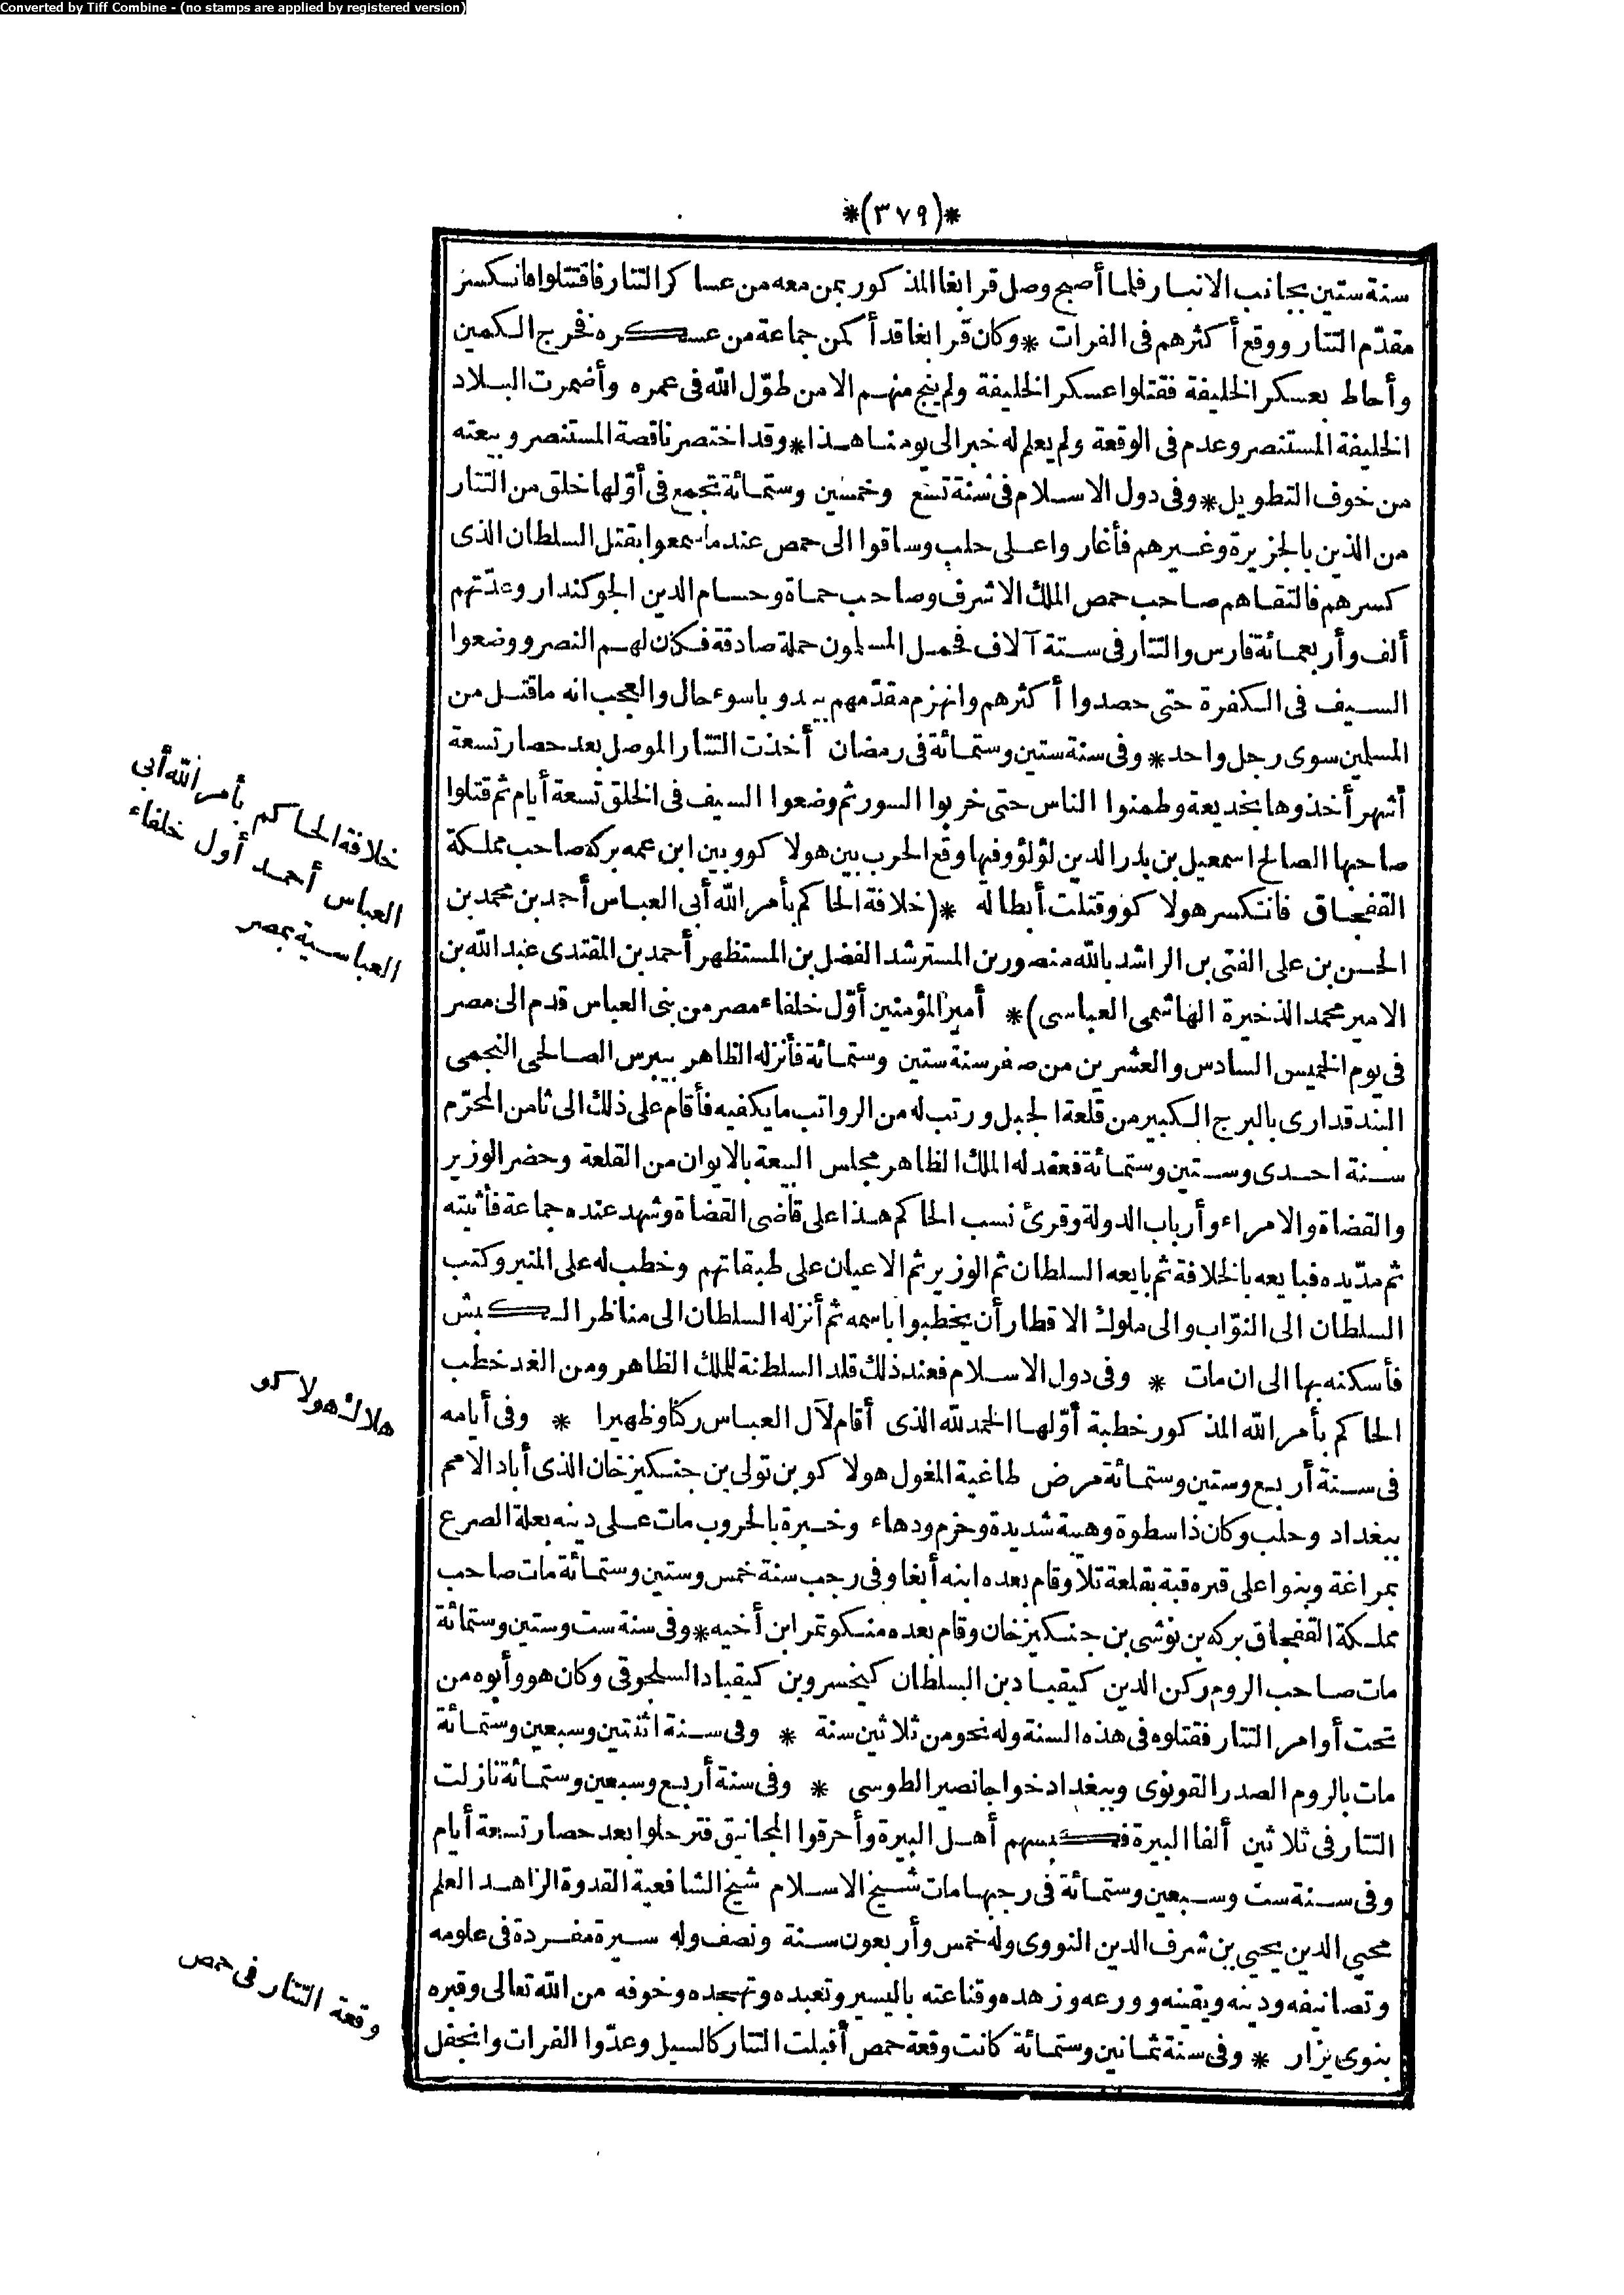 Converted by Tiff Combine - (no stamps are applied by registered version)
*(٣٧٩)*
سنة ستين بجانب الانبار فلما أصبح وصل قرابغا المذكور بمن معه من عساكر التتار فاقتتلوا فانكسر
مقدّم التتار ووقع أكثرهم فى الفرات * وكان قرابغا قد أكمن جماعة من عسكره فخرج الكمين
وأحاط بعسكر الخليفة فقتلوا عسكر الخليفة ولم ينج منهم الا من طوّل الله فى عمره وأضمرت البلاد
الخليفة المستنصر وعدم فى الوقعة ولم يعلم له خبر الى يومنا هذا * وقد اختصرنا قصة المستنصر وبيعته
من خوف التطويل * وفى دول الاسلام فى سنة تسع وخمسين وستمائة تجمع فى أوّلها خلق من التتار
من الذين بالجزيرة وغيرهم فأغاروا على حلب وساقوا الى حمص عندما سمعوا بقتل السلطان الذى
كسرهم فالتقاهم صاحب حمص الملك الاشرف وصاحب حماة وحسام الدين الجوكندار وعدّتهم
ألف وأربعمائة فارس والتتار فى ستة آلاف فحمل المسلمون حملة صادقة فكان لهم النصر ووضعوا
السيف فى الكفرة حتى حصدوا أكثرهم وانهزم مقدّمهم بيدو باسوء حال والعجب انه ما قتل من
المسلمين سوى رجل واحد * وفى سنة ستين وستمائة فى رمضان أخذت التتار الموصل بعد حصار تسعة
أشهر أخذوها بخديعة وطمنوا الناس حتى خربوا السور ثم وضعوا السيف فى الخلق تسعة أيام ثم قتلوا
صاحبها الصالح اسمعيل بن بدر الدين لؤلؤ وفيها وقع الحرب بين هولاكو وبين ابن عمه بركه صاحب مملكة
القفجاق فانكسر هولاكو وقتلت أبطاله *(خلافة الحاكم بأمر الله أبى العباس أحمد بن محمد بن
الحسن بن على الفتى بن الراشد بالله منصور بن المسترشد الفضل بن المستظهر أحمد بن المقتدى عبد الله بن
الامير محمد الذخيرة الهاشمى العباسى)* أمير المؤمنين أوّل خلفاء مصر من بنى العباس قدم الى مصر
فى يوم الخميس السادس والعشرين من صفر سنة ستين وستمائة فأنزله الظاهر بيبرس الصالحى النجمى
البندقدارى بالبرج الكبير من قلعة الجبل ورتب له من الرواتب ما يكفيه فأقام على ذلك الى ثامن المحرّم
سنة احدى وستين وستمائة فعقد له الملك الظاهر مجلس البيعة بالايوان من القلعة وحضر الوزير
والقضاة والامراء وأرباب الدولة وقرئ نسب الحاكم هذا على قاضى القضاة وشهد عنده جماعة فأثبته
ثم مدّ يده فبايعه بالخلافة ثم بايعه السلطان ثم الوزير ثم الاعيان على طبقاتهم وخطب له على المنبر وكتب
السلطان الى النوّاب والى ملوك الاقطار أن يخطبوا باسمه ثم أنزله السلطان الى مناظر الكبش
فأسكنه بها الى ان مات * وفى دول الاسلام فعند ذلك قلد السلطنة للملك الظاهر ومن الغد خطب
الحاكم بأمر الله المذكور خطبة أوّلها الحمد لله الذى أقام لآل العباس ركنا وظهيرا * وفى أيامه
فى سنة أربع وستين وستمائة مرض طاغية المغول هولاكو بن تولى بن جنكيزخان الذى أباد الامم
ببغداد وحلب وكان ذا سطوة وهيبة شديدة وحزم ودهاء وخبرة بالحروب مات على دينه بعلة الصرع
بمراغة وبنوا على قبره قبة بقلعة تلا وقام بعده ابنه أبغا وفى رجب سنة خمس وستين وستمائة مات صاحب
مملكة القفجاق بركه بن توشى بن جنكيزخان وقام بعده منكوتمر ابن أخيه * وفى سنة ست وستين وستمائة
مات صاحب الروم ركن الدين كيقباد بن السلطان كيخسرو بن كيقباد السلجوقى وكان هو وأبوه من
تحت أوامر التتار فقتلوه فى هذه السنة وله نحو من ثلاثين سنة * وفى سنة اثنتين وسبعين وستمائة
مات بالروم الصدر القونوى وببغداد خواجا نصير الطوسى * وفى سنة أربع وسبعين وستمائة نازلت
التتار فى ثلاثين ألفا البيرة فكبسهم أهل البيرة وأحرقوا المجانيق فترحلوا بعد حصار تسعة أيام
وفى سنة ست وسبعين وستمائة فى رجبها مات شيخ الاسلام شيخ الشافعية القدوة الزاهد العلم
محيي الدين يحيى بن شرف الدين النووى وله خمس وأربعون سنة ونصف وله سيرة مفردة فى علومه
وتصانيفه ودينه ويقينه وورعه وزهده وقناعته باليسير وتعبده وتهجده وخوفه من الله تعالى وقبره
بنوى يزار * وفى سنة ثمانين وستمائة كانت وقعة حمص أقبلت التتار كالسيل وعدّوا الفرات وانجفل
خلافة الحاكم بأمر الله أبى
العباس أحمد أول خلفاء
العباسية بمصر
هلاك هولاكو
وقعة التتار فى حمص